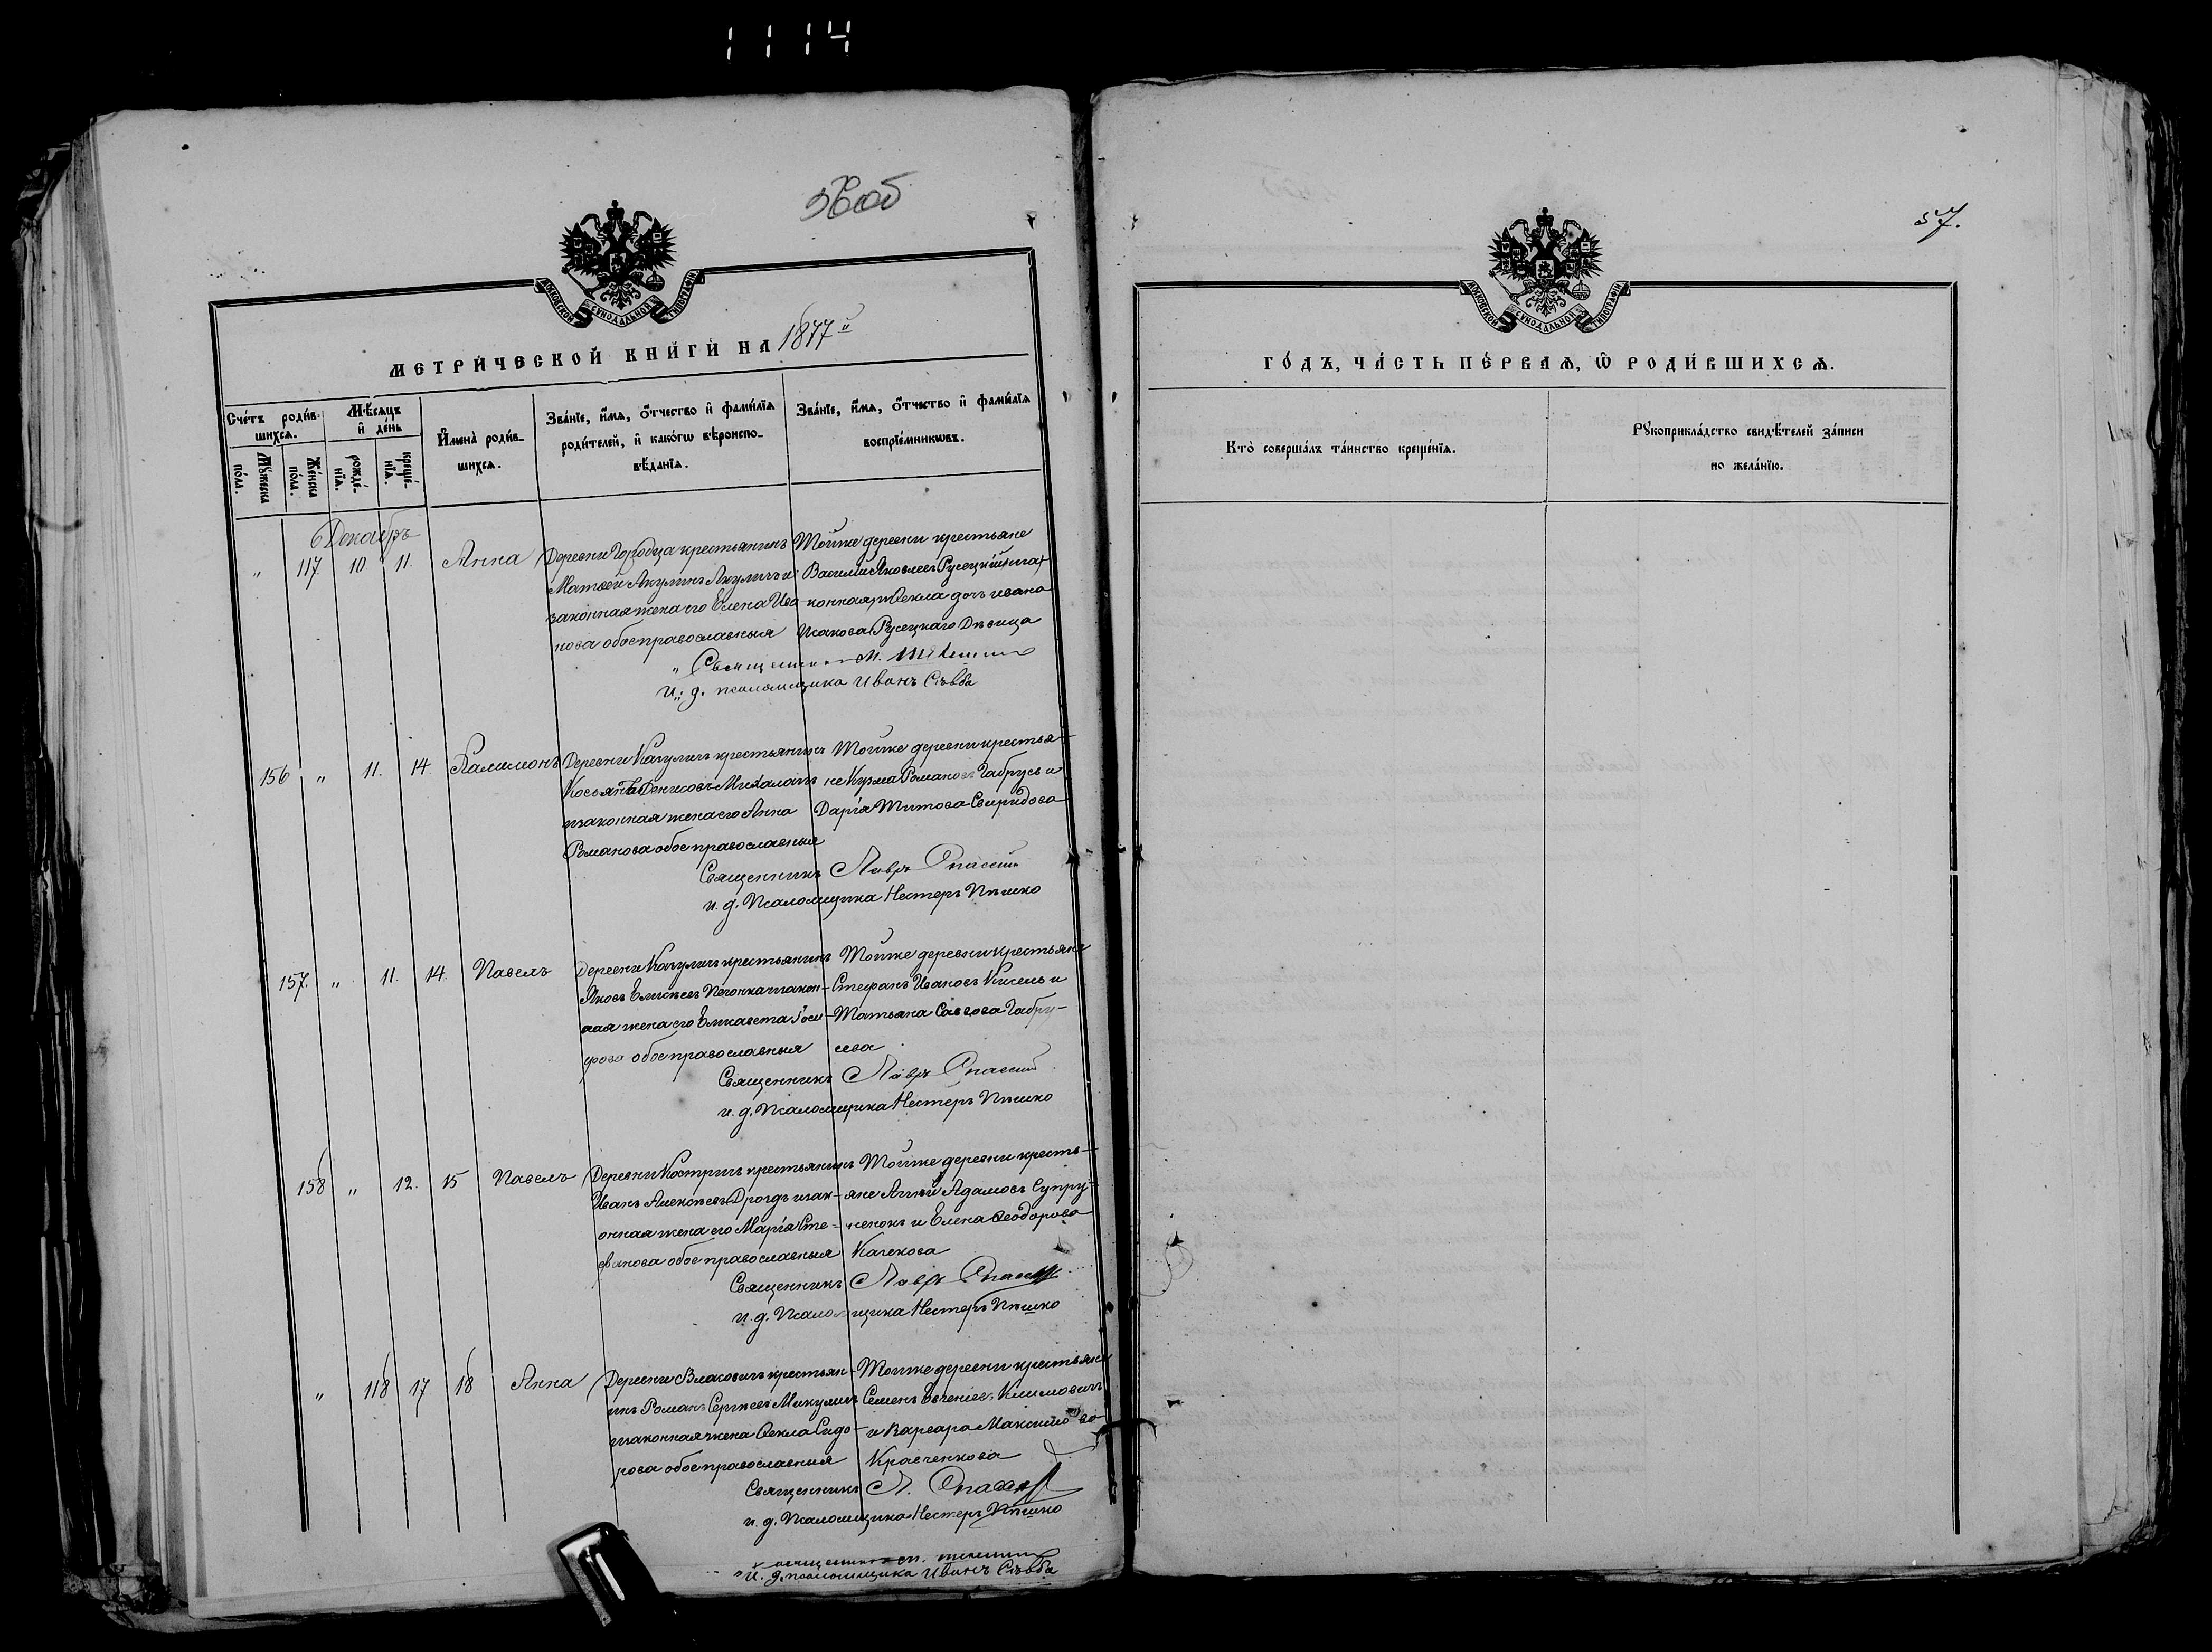 1114
56 об
57.
МОСКОВСКОЙ СѴНОДАЛЬНОЙ ТИПОГРАФІИ
МЕТРИ́ЧЕСКОЙ КНИ́ГИ НА 1877 й
Сче́тъ роди́вшихсѧ.
Мꙋ́жеска по́ла.
Же́нска по́ла.
Мѣ́сѧцъ и҆ де́нь
рожде́нїѧ.
креще́нїѧ.
И҆мена̀ роди́вшихсѧ.
Зва́нїе, и҆́мѧ, ѻ҆́тчество и҆ фами́лїѧ роди́телей, и҆ како́гѡ вѣроисповѣ́данїѧ.
Зва́нїе, и҆́мѧ, ѻ҆́тчество и҆ фами́лїѧ воспрїе́мникѡвъ.
Декабрь
" 117. 10. 11. Анна
Деревни Городца крестьянинъ
Матѳей Акулинъ Акуличъ и
законная жена его Елена Ива-
нова обое православныя
Тойже деревни крестьяне
Василій Яковлевъ Русецкій
Ѳекла дочь Ивана
Исакова Русецкаго Дѣвица
Священникъ
И. д. псаломщика Иванъ Савва
156 " 11. 14.
Деревни Качуличъ крестьянинъ
Денисовъ
и законная жена его Анна
Романова обое православныя
Тойже деревни крестья-
не Кузма Романовъ Габрусь и
Дарія Титова Свиридова
Священникъ Лавръ Спасскій
и. д. Псаломщика Нестеръ Пѣшко
157. " 11. 14. Павелъ
Деревни Качуличъ крестьянинъ
Яковъ Елисѣевъ
ная жена его Елисавета Іоси-
фова обое православныя
Тойже деревни крестьяне
Стефанъ Ивановъ Кисель и
Татьяна Саввова Габру-
сева
Священникъ Лавръ Спасскій
и. д. Псаломщика Нестеръ Пѣшко
158 " 12. 15 Павелъ
Деревни Костричъ крестьянинъ
Иванъ Алексѣевъ Дроздъ и зак-
онная жена его Марія Сте-
фанова обое православныя
Тойже деревни кресть-
яне Адамовъ Супру-
ненокъ и Елена Ѳеодорова
Каченова
Священникъ Лавръ Спасскій
и. д. Псаломщика Нестеръ Пѣшко
" 118 17 18 Анна
Деревни Власовичъ крестьян-
инъ Романъ Сергѣевъ Микуличъ
и законная жена Ѳекла Сидо-
рова обое православныя
Тойже деревни крестьяне
Семенъ Климовичъ
и Варвара Максимова
Кравченкова
Священникъ Л. Спасскій
и. д. Псаломщика Нестеръ Пѣшко
И. д. псаломщика Иванъ Савва
МОСКОВСКОЙ СѴНОДАЛЬНОЙ ТИПОГРАФІИ
ГО́ДЪ, ЧА́СТЬ ПЕ́РВАѦ, Ѽ РОДИ́ВШИХСѦ.
Кто̀ соверша́лъ та́инство креще́нїѧ.
Рꙋкоприкла́дство свидѣ́телей за́писи по жела́нїю.